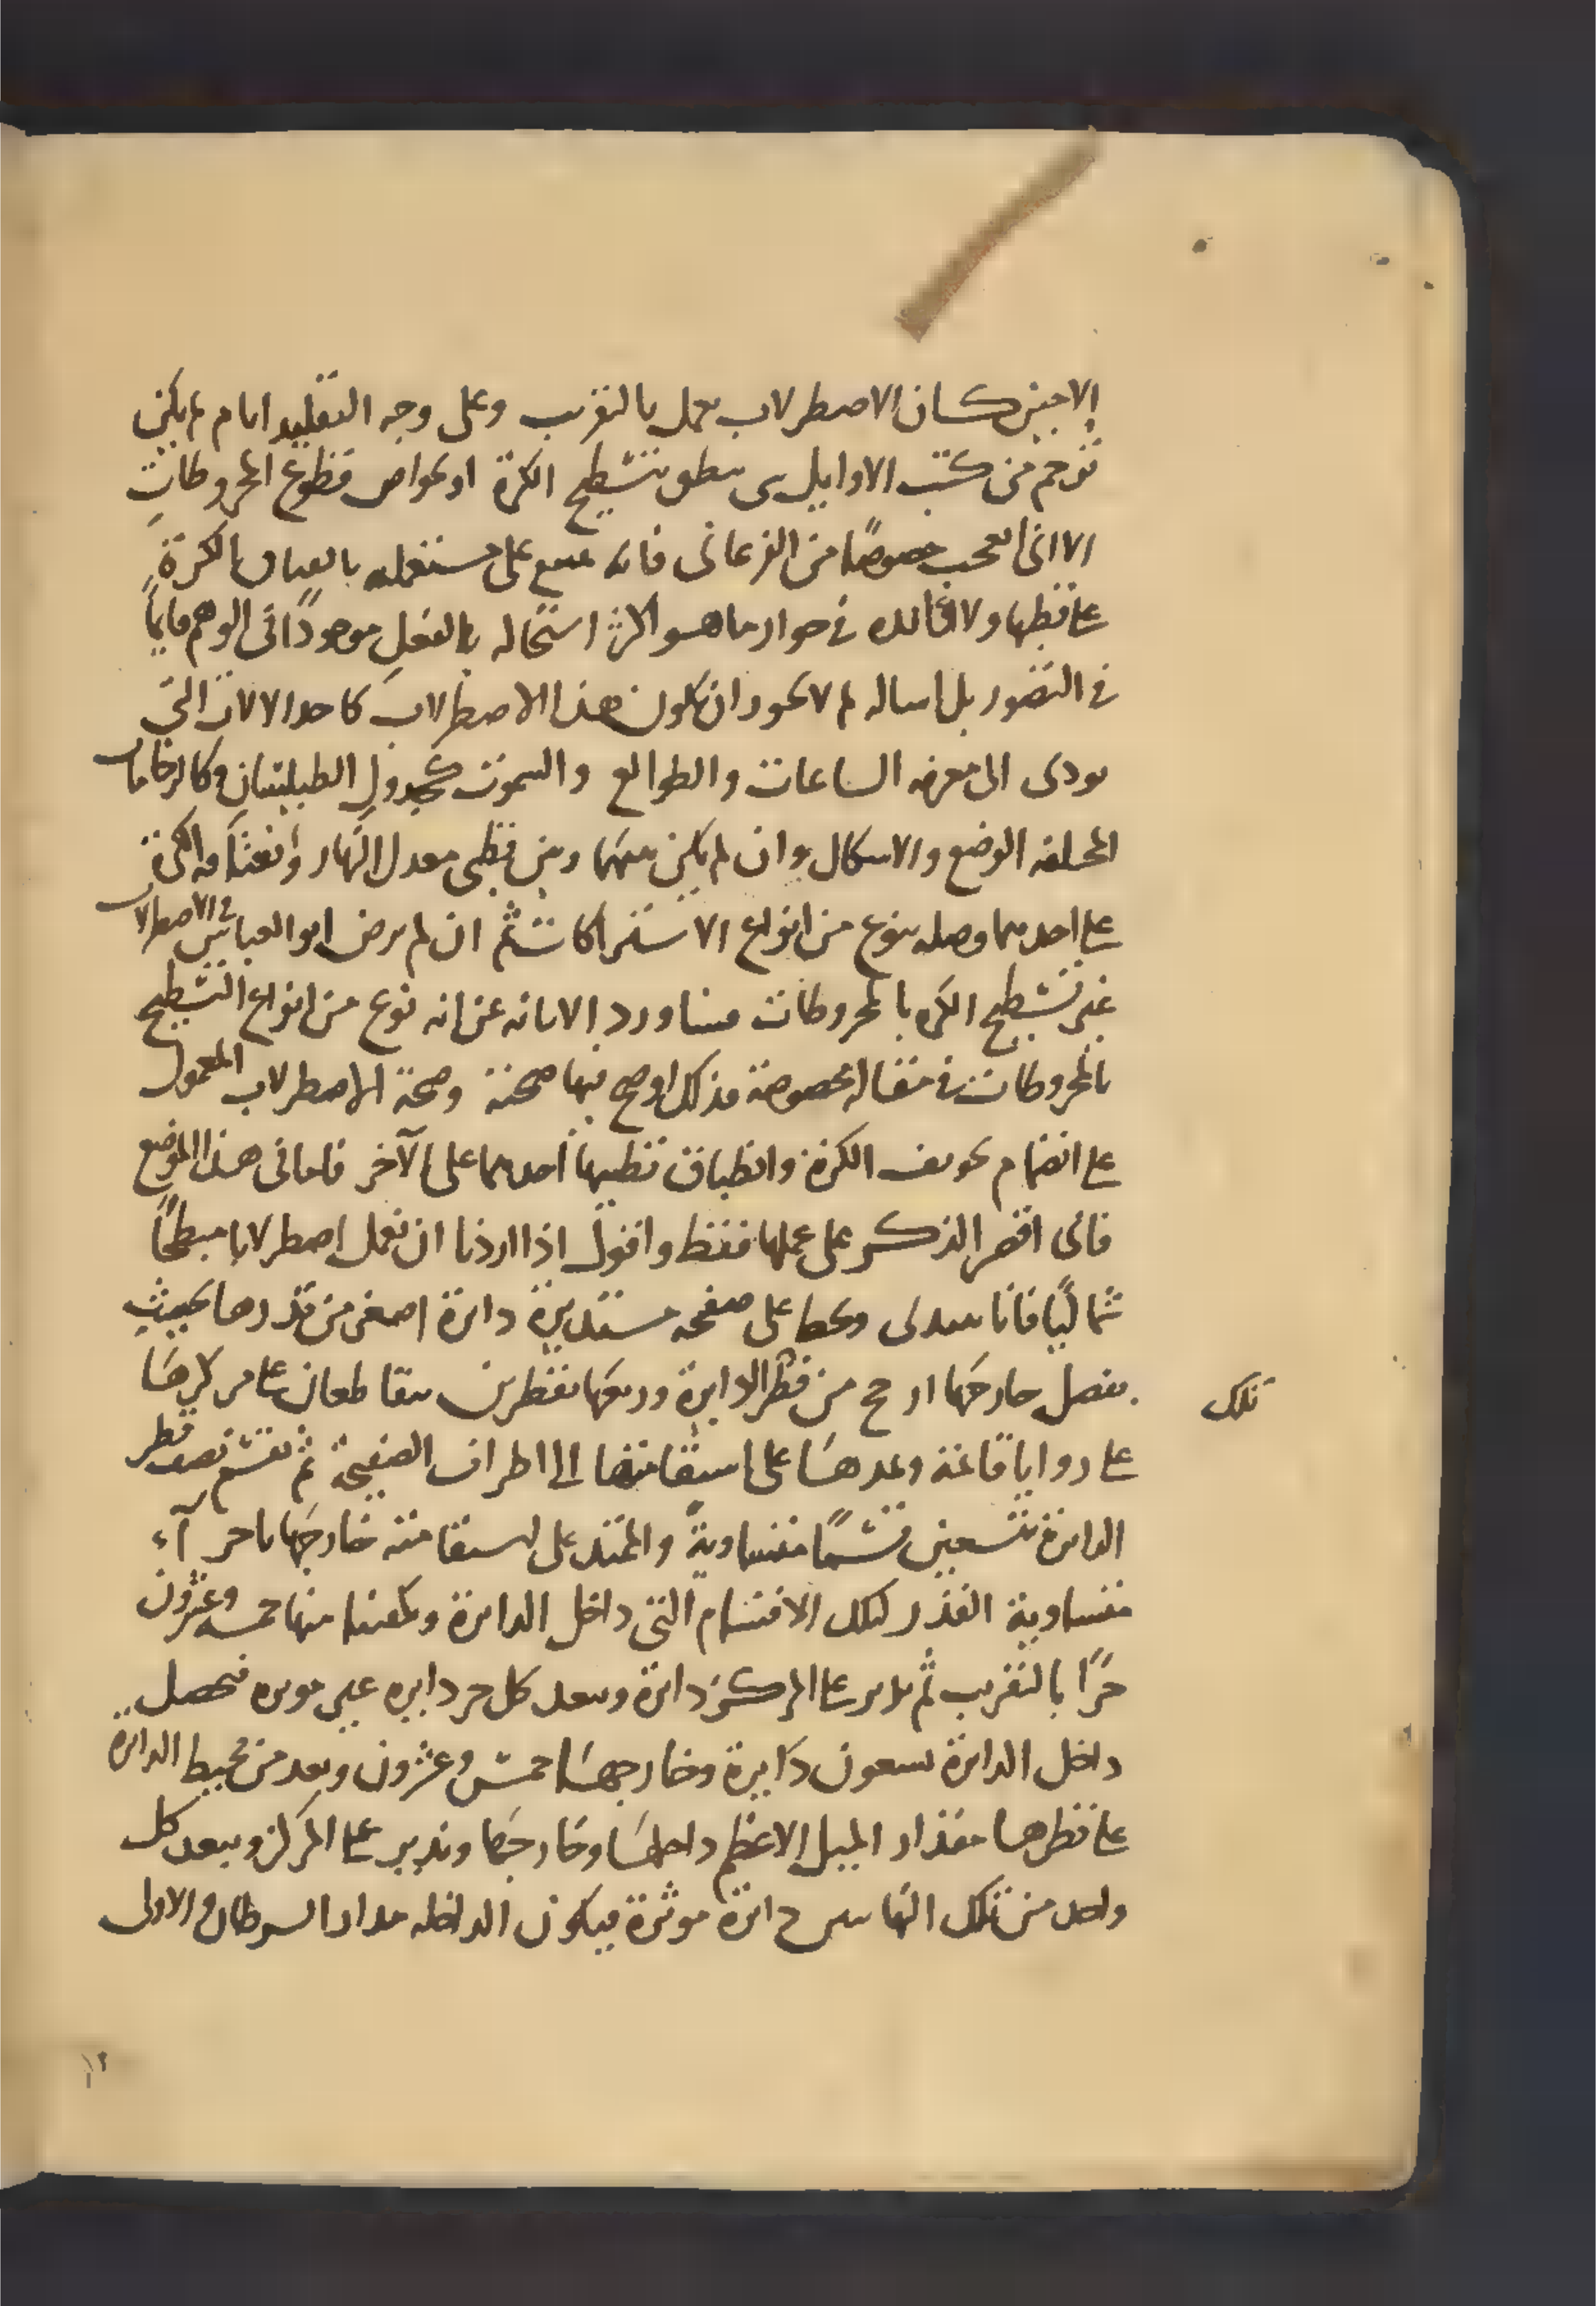 الا حين كان الاصطرلاب يعمل بالتقريب وعلى وجه التقليد ايام لم يكن
ترجم من كتب الاوايل شى ينطق بتسطيح الكرة او بخواص قطوع المخروطات
الا انى اتعجب خصوصًا من الفرغانى فانه على مستعمله بالكرة
على قطبها ولا فى جواز ما هو اكثر استحالة بالفعل موجودًا فى الوهم قايمًا
فى التصور بل اساله لم لا يجوز ان يكون هذا الاصطرلاب كاحد الالات التى
يودى الى معرفة الساعات والطوالع والسموت كجدول الطيلسان وكالرخامات
المختلفة الوضع والاشكال وان لم يكن بينهما وبين قطبى معدل النهار الكرة
على احدهما وصله بنوع من انواع الاشتراكات ثم ان لم يرض ابو العباس فى الاصطرلاب
غير تسطيح الكره بالمخروطات الابانه عن انه نوع من انواع التسطيح
بالمخروطات فى مقالة مخصوصة بذلك اوضح فيها صحته وصحة الاصطرلاب المعمول
على انضمام تجويف الكرة وانطباق قطبيها احدهما على الآخر فاما فى هذا الموضع
فانى اقصر الذكر على عملها فقط واقول اذا اردنا ان نعمل اصطرلابا مبطحًا
شماليًا فانا نبتدى ونخط على صفحه مستديرة دائرة اصغر من قدرها بحيث
يفضل خارجها ار حج من قطر الدايرة ونربعها بقطرين يتقاطعان على مركزها
تلك
على زوايا قائمة ونمدهما على استقامتهما الى اطراف الصفيحة ثم نقسم نصف قطر
الدائرة بتسعين قسمًا متساوية والممتد على استقامته خارجها باجزآء
متساوية القدر لتلك الاقسام التى داخل الدائرة ويكفينا منها خمسه وعشرون
جزًا بالتقريب ثم ندير على المركز دائرة وببعد كل جز دايره غير موثره فيحصل
داخل الدائرة تسعون دايرة وخارجها خمس وعشرون ونعد من محيط الدائرة
على قطرها مقدار الميل الاعظم داخلها وخارجها وندير على المركز وببعد كل
واحد من تلك النهايتين دائرة موثرة فيكون الداخله مدار السرطان والاولى
١٢